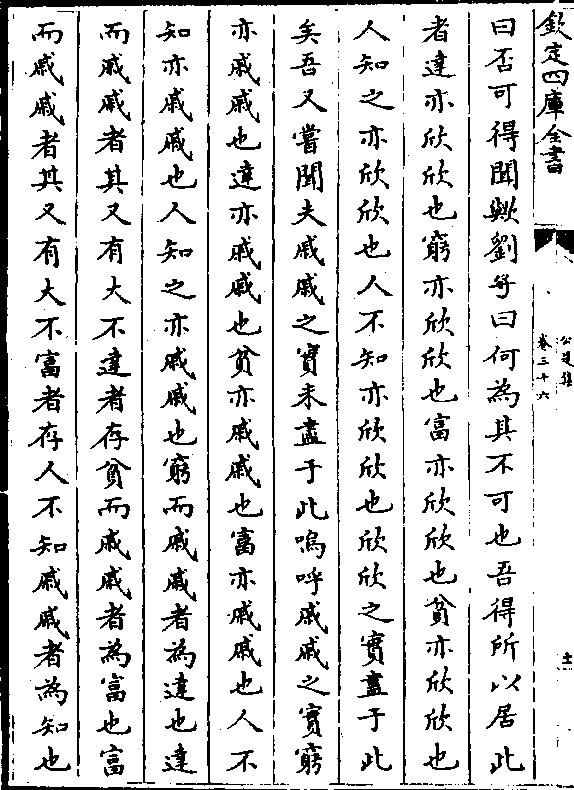 欽定四庫全書
公是集
卷三十六
十一
曰否可得聞歟劉子曰何為其不可也吾得所以居此
者達亦欣欣也窮亦欣欣也富亦欣欣也貧亦欣欣也
人知之亦欣欣也人不知亦欣欣也欣欣之實盡于此
矣吾又嘗聞夫戚戚之實未盡于此嗚呼戚戚之實窮
亦戚戚也達亦戚戚也貧亦戚戚也富亦戚戚也人不
知亦戚戚也人知之亦戚戚也窮而戚戚者為達也達
而戚戚者其又有大不達者存貧而戚戚者為富也富
而戚戚者其又有大不富者存人不知戚戚者為知也